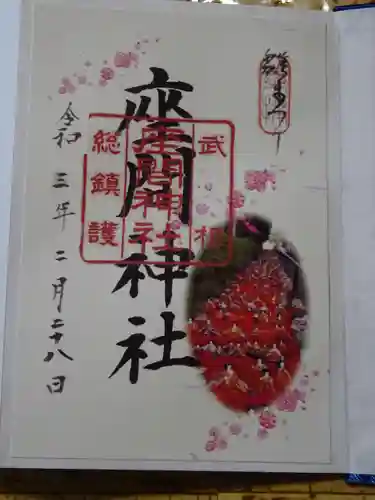 雛まつり
座間神社
武相
座間神社
総鎮護
令和三年二月二十八日